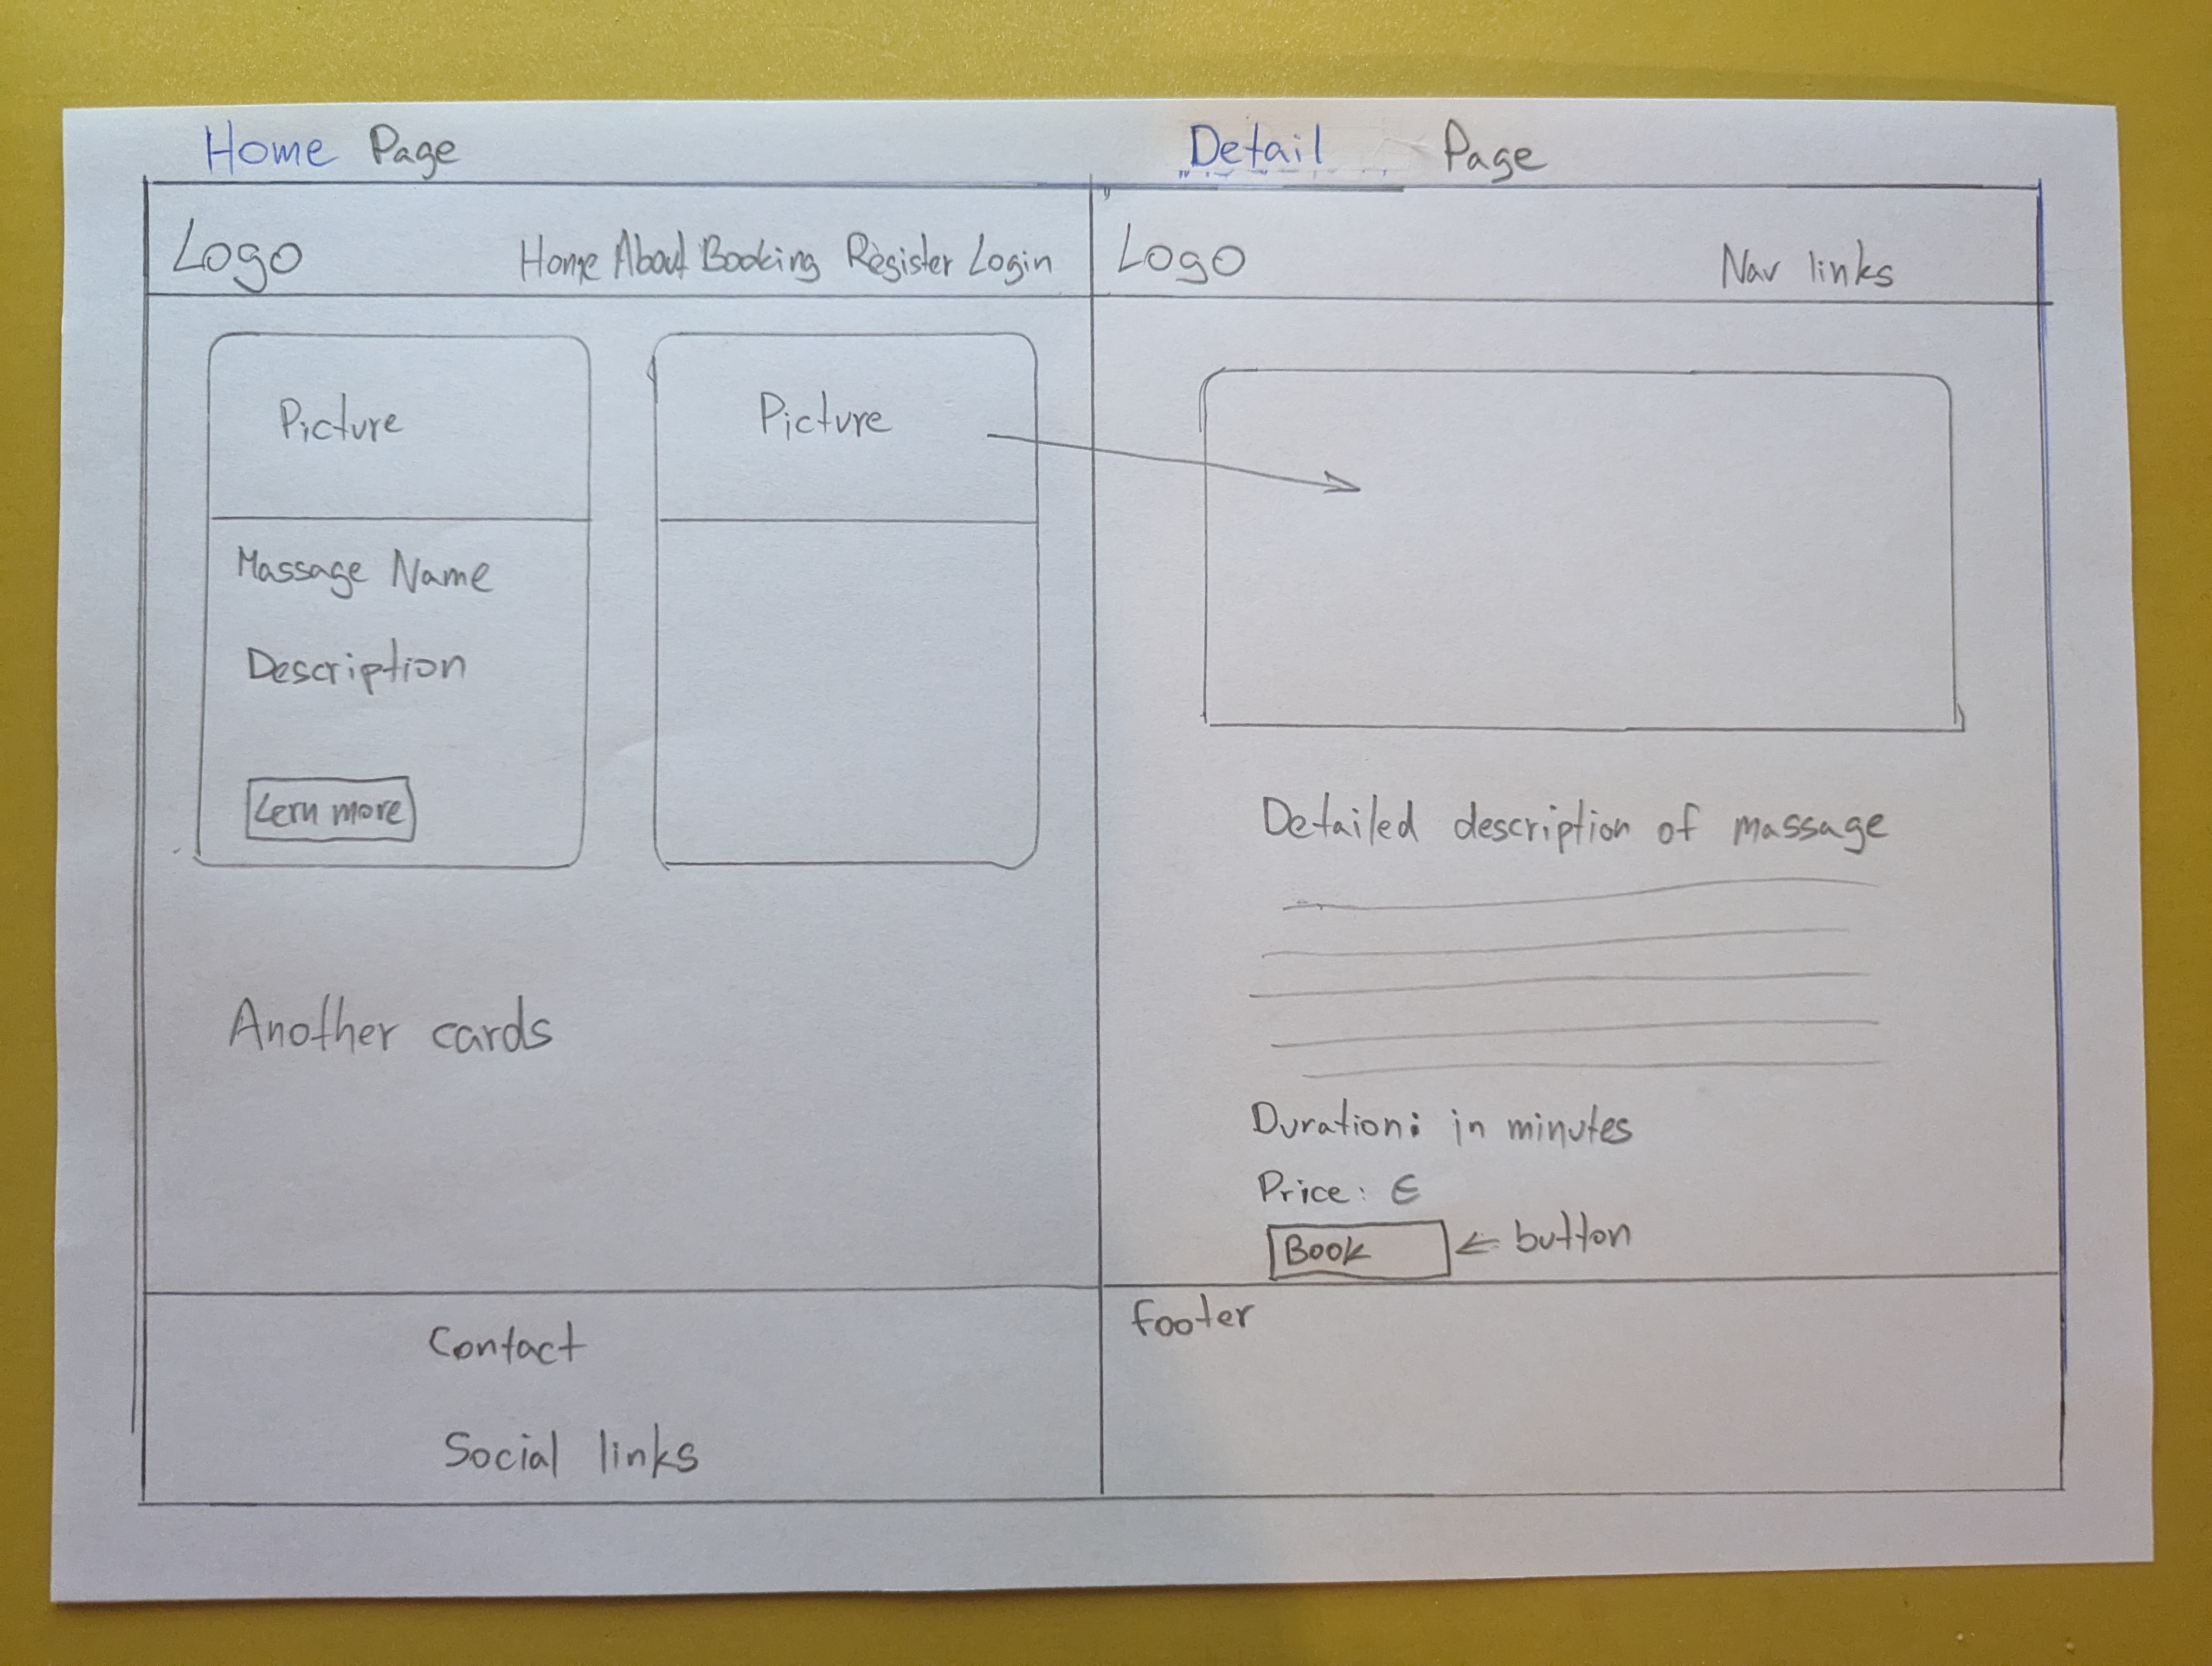 Home Page
Logo
Home About Booking Register Login
Picture
Picture
Massage Name
Description
Lern more
Another cards
Contact
Social links
Detail Page
Logo
Nav links
Detailed description of massage
Duration: in minutes
Price: €
Book
← button
footer